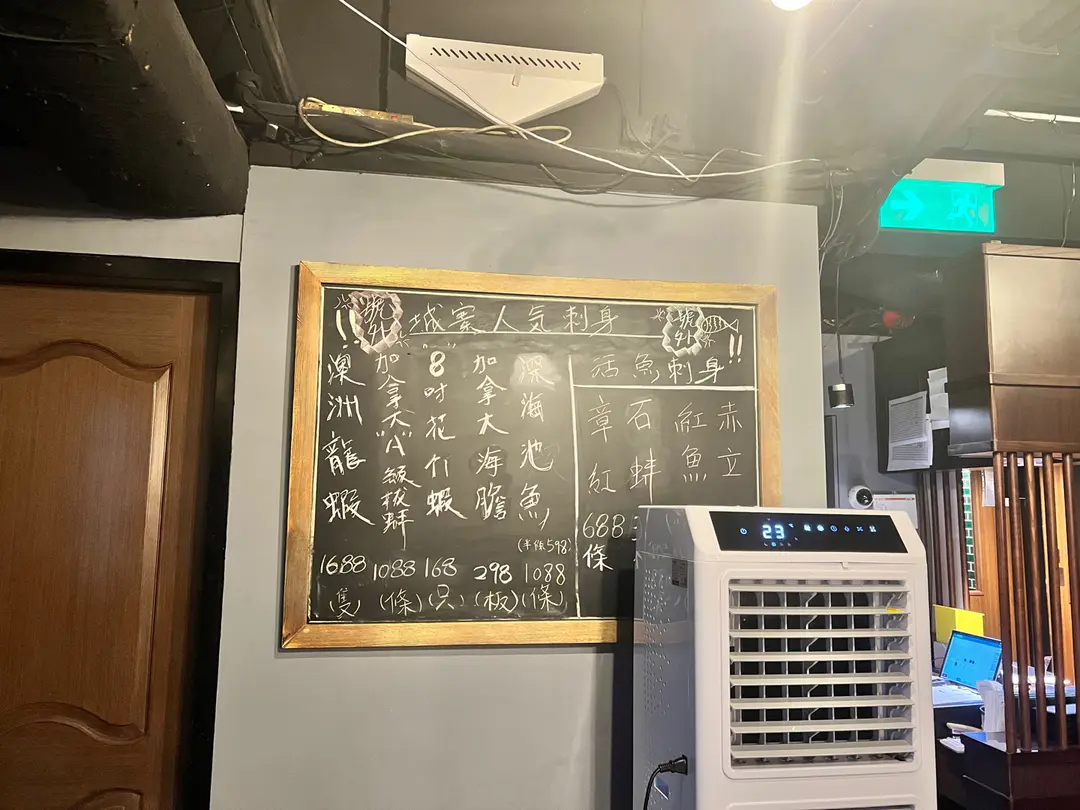 !! 號外 城寨人気刺身 號外 !!
澳洲龍蝦
1688
(隻)
加拿大"A"級拔蚌
1088
(條)
8吋花竹蝦
168
(只)
加拿大海膽
298
(板)
深海池魚
(半條598)
1088
(條)
活魚刺身
章紅
688
條
石蚌
紅魚
赤立
23